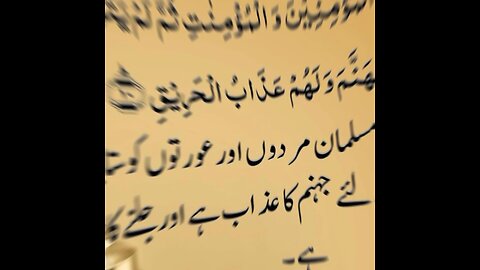 الْمُؤْمِنِيْنَ وَ الْمُؤْمِنٰتِ ثُمَّ لَمْ
جَهَنَّمَ وَ لَهُمْ عَذَابُ الْحَرِيْقِ
مسلمان مردوں اور عورتوں کو
لئے جہنم کا عذاب ہے اور جلنے کا
ہے۔